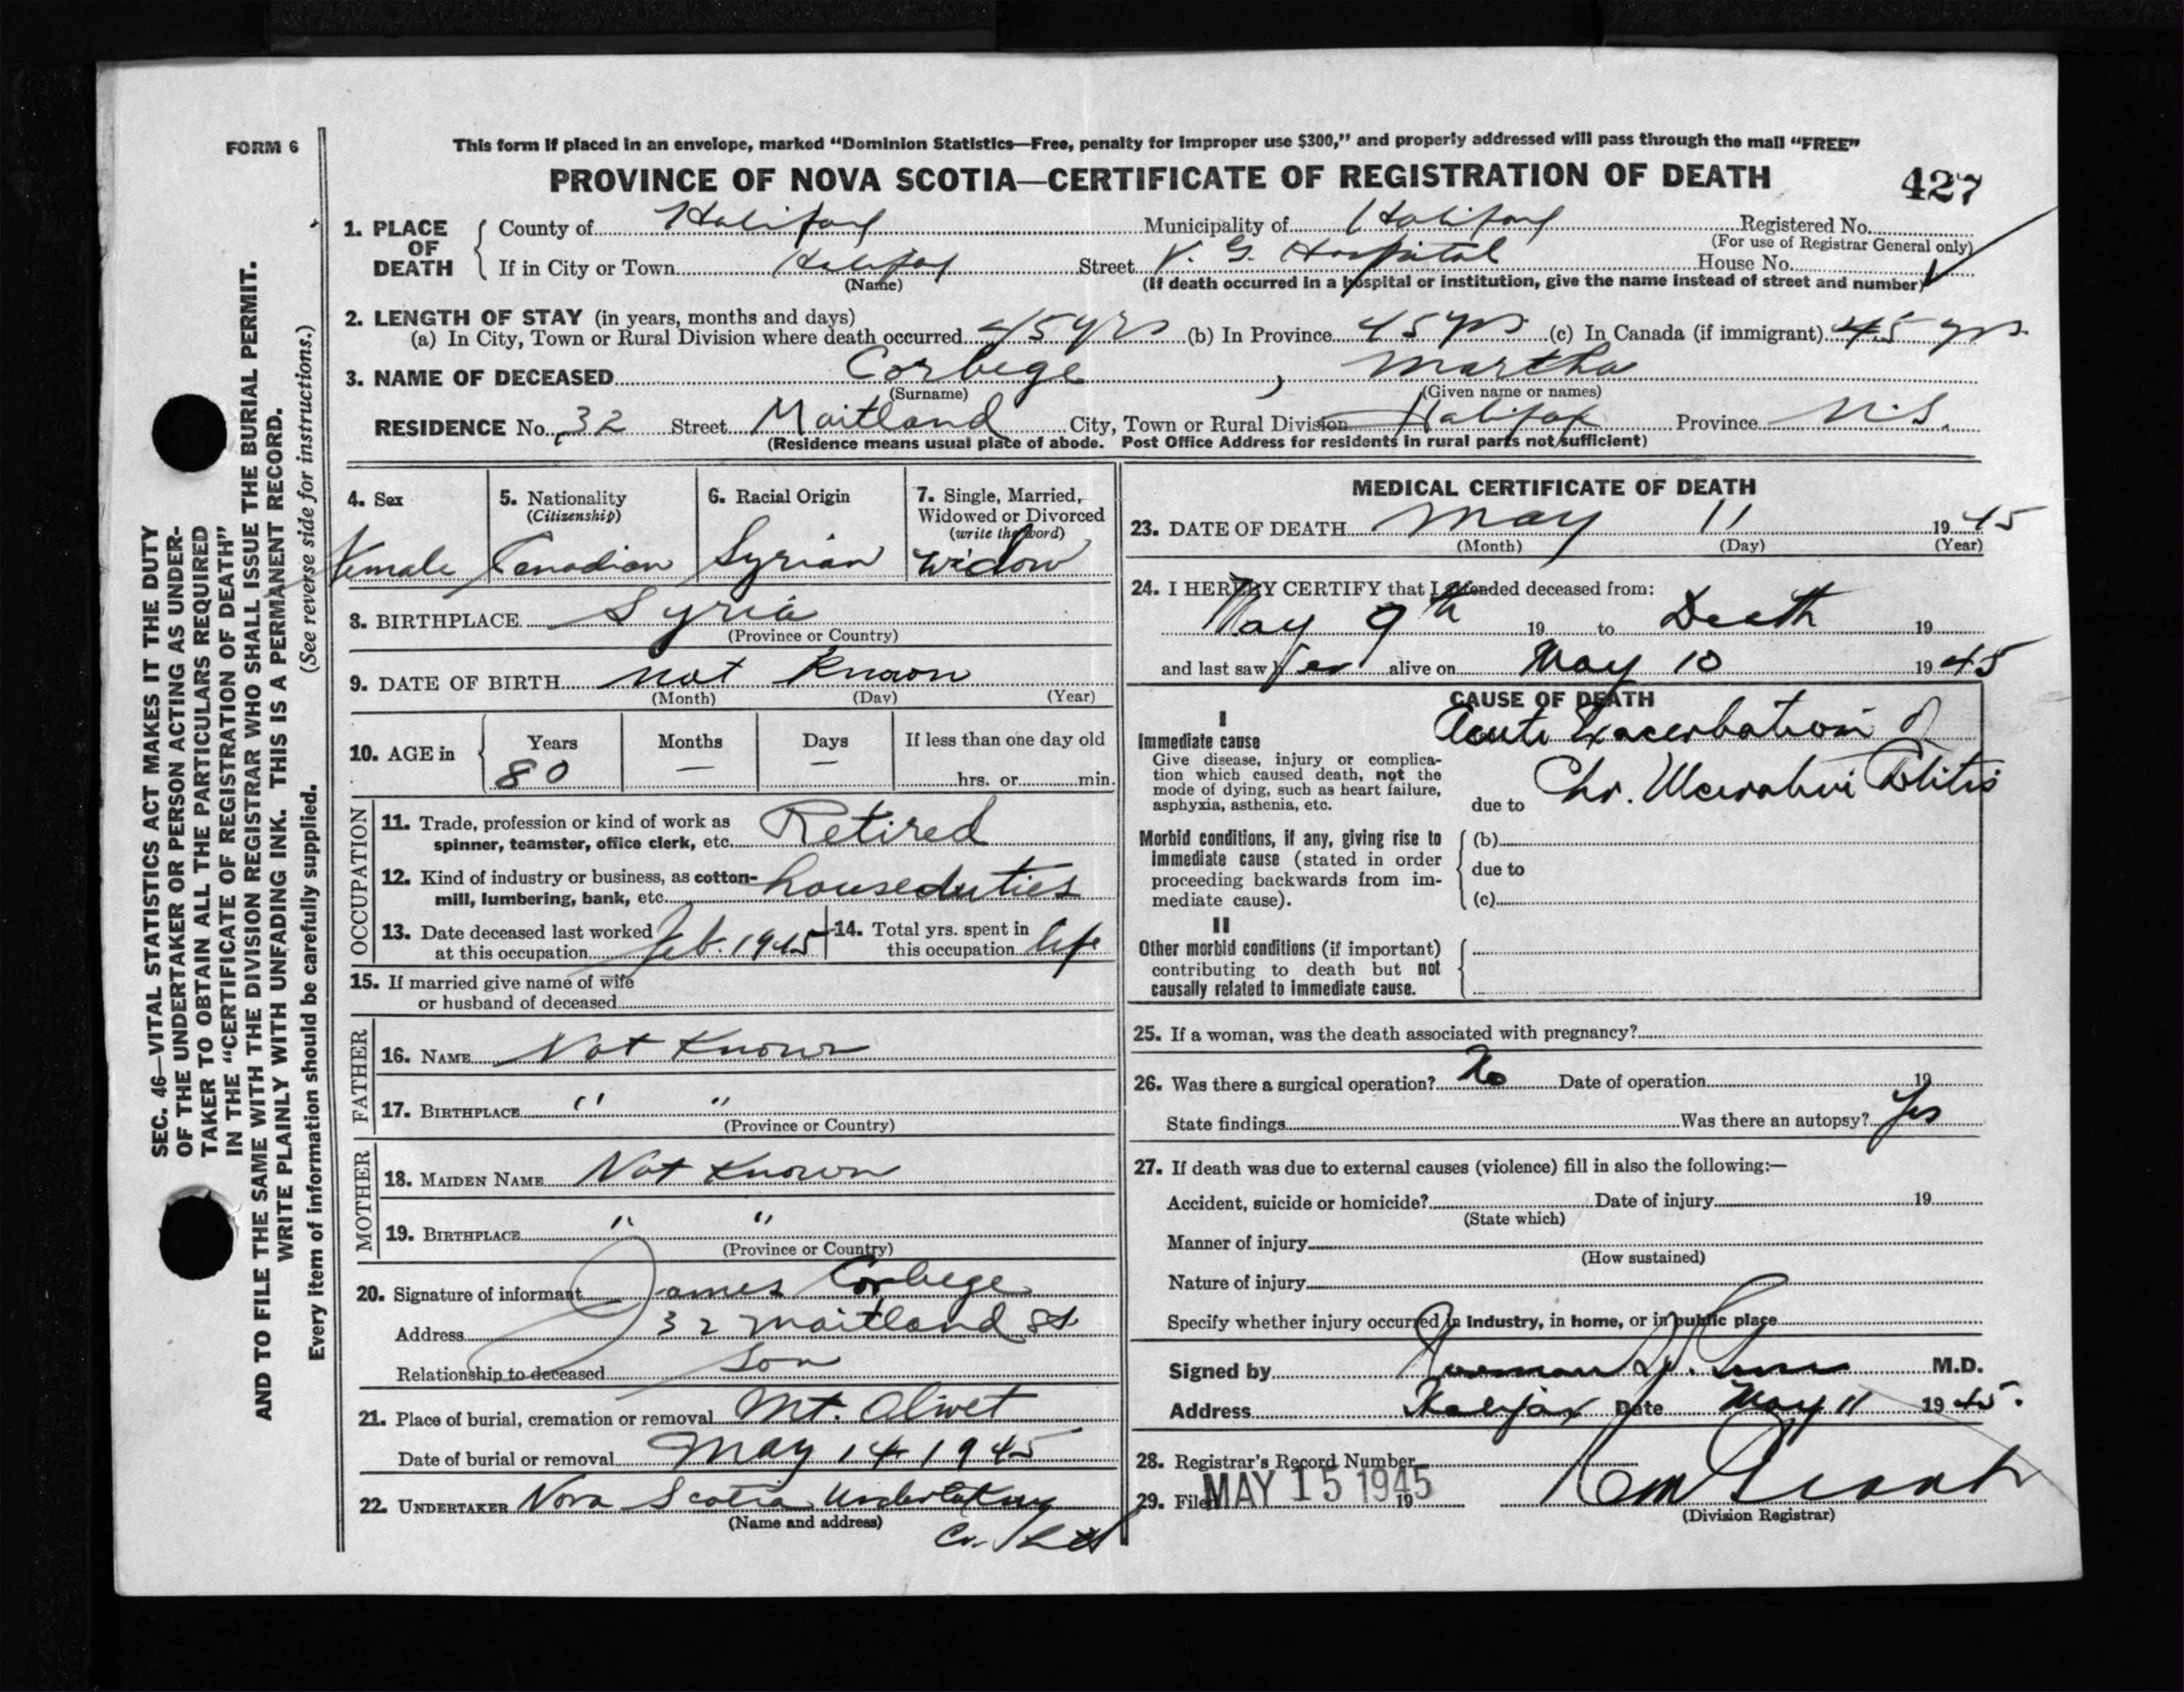 FORM 6
This form if placed in an envelope, marked "Dominion Statistics—Free, penalty for improper use $300," and properly addressed will pass through the mail "FREE"
PROVINCE OF NOVA SCOTIA—CERTIFICATE OF REGISTRATION OF DEATH
427
1. PLACE OF DEATH County of Halifax Municipality of Halifax Registered No.
(For use of Registrar General only)
If in City or Town Halifax Street V. G. Hospital House No.
(Name) (If death occurred in a hospital or institution, give the name instead of street and number)
2. LENGTH OF STAY (in years, months and days)
(a) In City, Town or Rural Division where death occurred 45 yrs (b) In Province 45 yrs (c) In Canada (if immigrant) 45 yrs
3. NAME OF DECEASED Corbege , Martha
(Surname) (Given name or names)
RESIDENCE No. 32 Street Maitland City, Town or Rural Division Halifax Province N.S.
(Residence means usual place of abode. Post Office Address for residents in rural parts not sufficient)
SEC. 46—VITAL STATISTICS ACT MAKES IT THE DUTY
OF THE UNDERTAKER OR PERSON ACTING AS UNDER-
TAKER TO OBTAIN ALL THE PARTICULARS REQUIRED
IN THE "CERTIFICATE OF REGISTRATION OF DEATH"
AND TO FILE THE SAME WITH THE DIVISION REGISTRAR WHO SHALL ISSUE THE BURIAL PERMIT.
WRITE PLAINLY WITH UNFADING INK. THIS IS A PERMANENT RECORD.
Every item of information should be carefully supplied. (See reverse side for instructions.)
4. Sex
Female
5. Nationality
(Citizenship)
Canadian
6. Racial Origin
Syrian
7. Single, Married,
Widowed or Divorced
(write the word)
Widow
8. BIRTHPLACE Syria
(Province or Country)
9. DATE OF BIRTH not known
(Month) (Day) (Year)
10. AGE in Years Months Days If less than one day old
80 — — hrs. or min.
OCCUPATION
11. Trade, profession or kind of work as
spinner, teamster, office clerk, etc. Retired
12. Kind of industry or business, as cotton-
mill, lumbering, bank, etc. houseduties
13. Date deceased last worked
at this occupation Feb. 1945
14. Total yrs. spent in
this occupation life
15. If married give name of wife
or husband of deceased
FATHER
16. NAME Not Known
17. BIRTHPLACE " "
(Province or Country)
MOTHER
18. MAIDEN NAME Not Known
19. BIRTHPLACE " "
(Province or Country)
20. Signature of informant James Corbege
Address 32 Maitland St
Relationship to deceased Son
21. Place of burial, cremation or removal Mt. Olivet
Date of burial or removal May 14 1945
22. UNDERTAKER Nova Scotia Undertaking
(Name and address) Co. Ltd
MEDICAL CERTIFICATE OF DEATH
23. DATE OF DEATH May 11 1945
(Month) (Day) (Year)
24. I HEREBY CERTIFY that I attended deceased from:
May 9th 19 to Death 19
and last saw her alive on May 10 1945
CAUSE OF DEATH
I
Immediate cause Acute Exacerbation of
Give disease, injury or complica-
tion which caused death, not the
mode of dying, such as heart failure,
asphyxia, asthenia, etc. due to Chr. Ulcerative Colitis
Morbid conditions, if any, giving rise to
immediate cause (stated in order
proceeding backwards from im-
mediate cause).
(b)
due to
(c)
II
Other morbid conditions (if important)
contributing to death but not
causally related to immediate cause.
25. If a woman, was the death associated with pregnancy?
26. Was there a surgical operation? No Date of operation 19
State findings Was there an autopsy? Yes
27. If death was due to external causes (violence) fill in also the following:—
Accident, suicide or homicide? Date of injury 19
(State which)
Manner of injury
(How sustained)
Nature of injury
Specify whether injury occurred in industry, in home, or in public place
Signed by Norman M.D.
Address Halifax Date May 11 1945.
28. Registrar's Record Number
29. Filed MAY 15 1945 19
Grant
(Division Registrar)